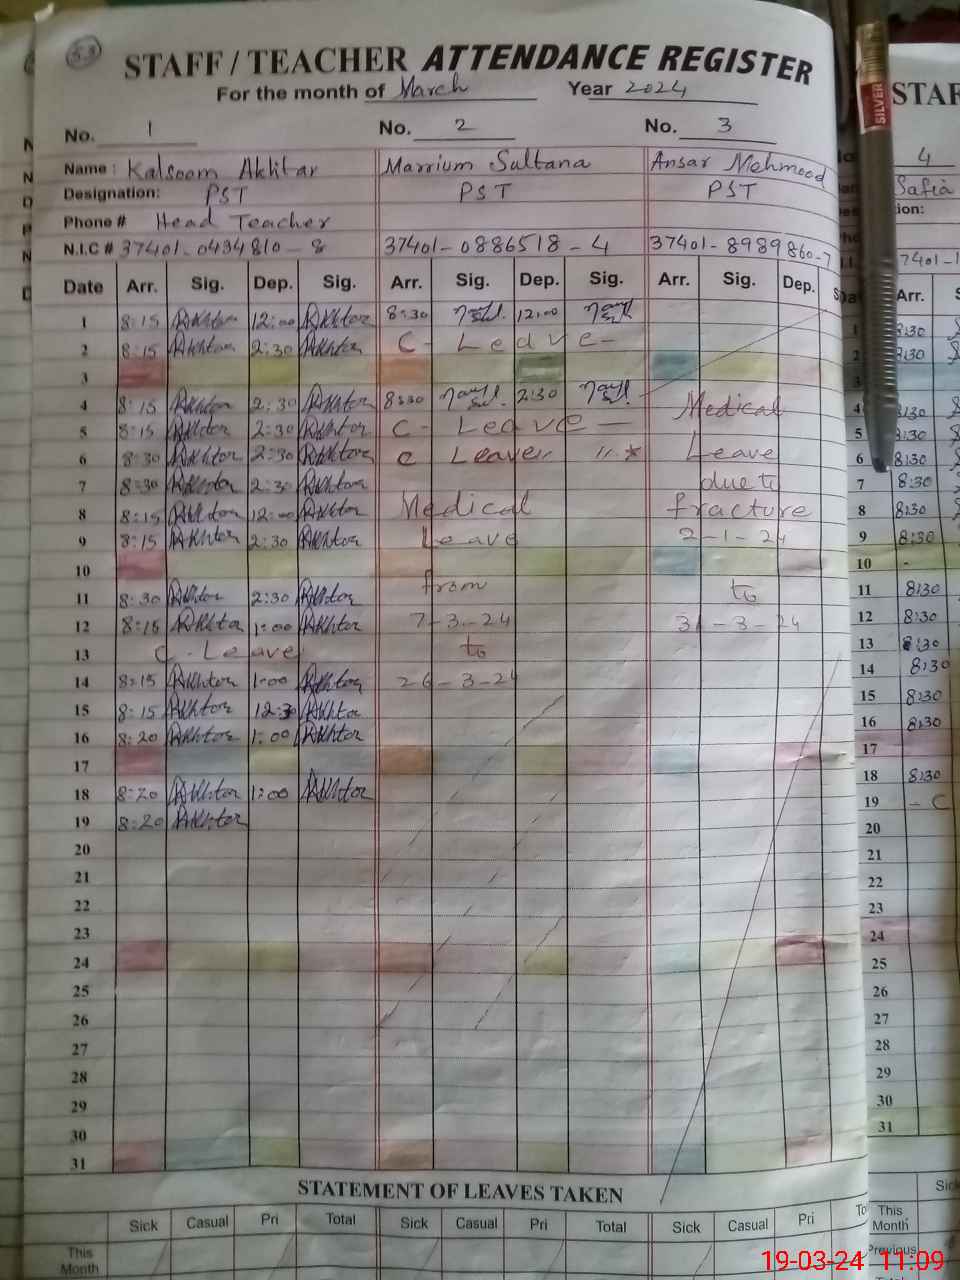 5.3
STAFF / TEACHER ATTENDANCE REGISTER
For the month of March Year 2024
No. 1 No. 2 No. 3
Name : Kalsoom Akhtar Marrium Sultana Ansar Mehmood
Designation: PST PST PST
Phone # Head Teacher
N.I.C # 37401-0434810-8 37401-0886518-4 37401-8989860-7
Date Arr. Sig. Dep. Sig. Arr. Sig. Dep. Sig. Arr. Sig. Dep.
1 8:15 Akhtar 12:00 Akhtar 8:30 12:00
2 8:15 Akhtar 2:30 Akhtar C- Leave-
3
4 8:15 Akhtar 2:30 Akhtar 8:30 2:30 Medical
5 8:15 Akhtar 2:30 Akhtar C- Leave -
6 8:30 Akhtar 2:30 Akhtar c Leave Leave
7 8:30 Akhtar 2:30 Akhtar due to
8 8:15 Akhtar 12:00 Akhtar Medical fracture
9 8:15 Akhtar 2:30 Akhtar Leave 2-1-24
10
11 8:30 Akhtar 2:30 Akhtar from to
12 8:15 Akhtar 1:00 Akhtar 7-3-24 31-3-24
13 C-Leave to
14 8:15 Akhtar 1:00 Akhtar 26-3-24
15 8:15 Akhtar 12:30 Akhtar
16 8:20 Akhtar 1:00 Akhtar
17
18 8:20 Akhtar 1:00 Akhtar
19 8:20 Akhtar
20
21
22
23
24
25
26
27
28
29
30
31
STATEMENT OF LEAVES TAKEN
Sick Casual Pri Total Sick Casual Pri Total Sick Casual Pri
This
Month
STAF
4
Safia
Arr.
8:30
8:30
8:30
5 8:30
6 8:30
7 8:30
8 8:30
9 8:30
10 -
11 8:30
12 8:30
13 8:30
14 8:30
15 8:30
16 8:30
17
18 8:30
19 - C
20
21
22
23
24
25
26
27
28
29
30
31
Sick
This
Month
Previous
SILVER
19-03-24 11:09